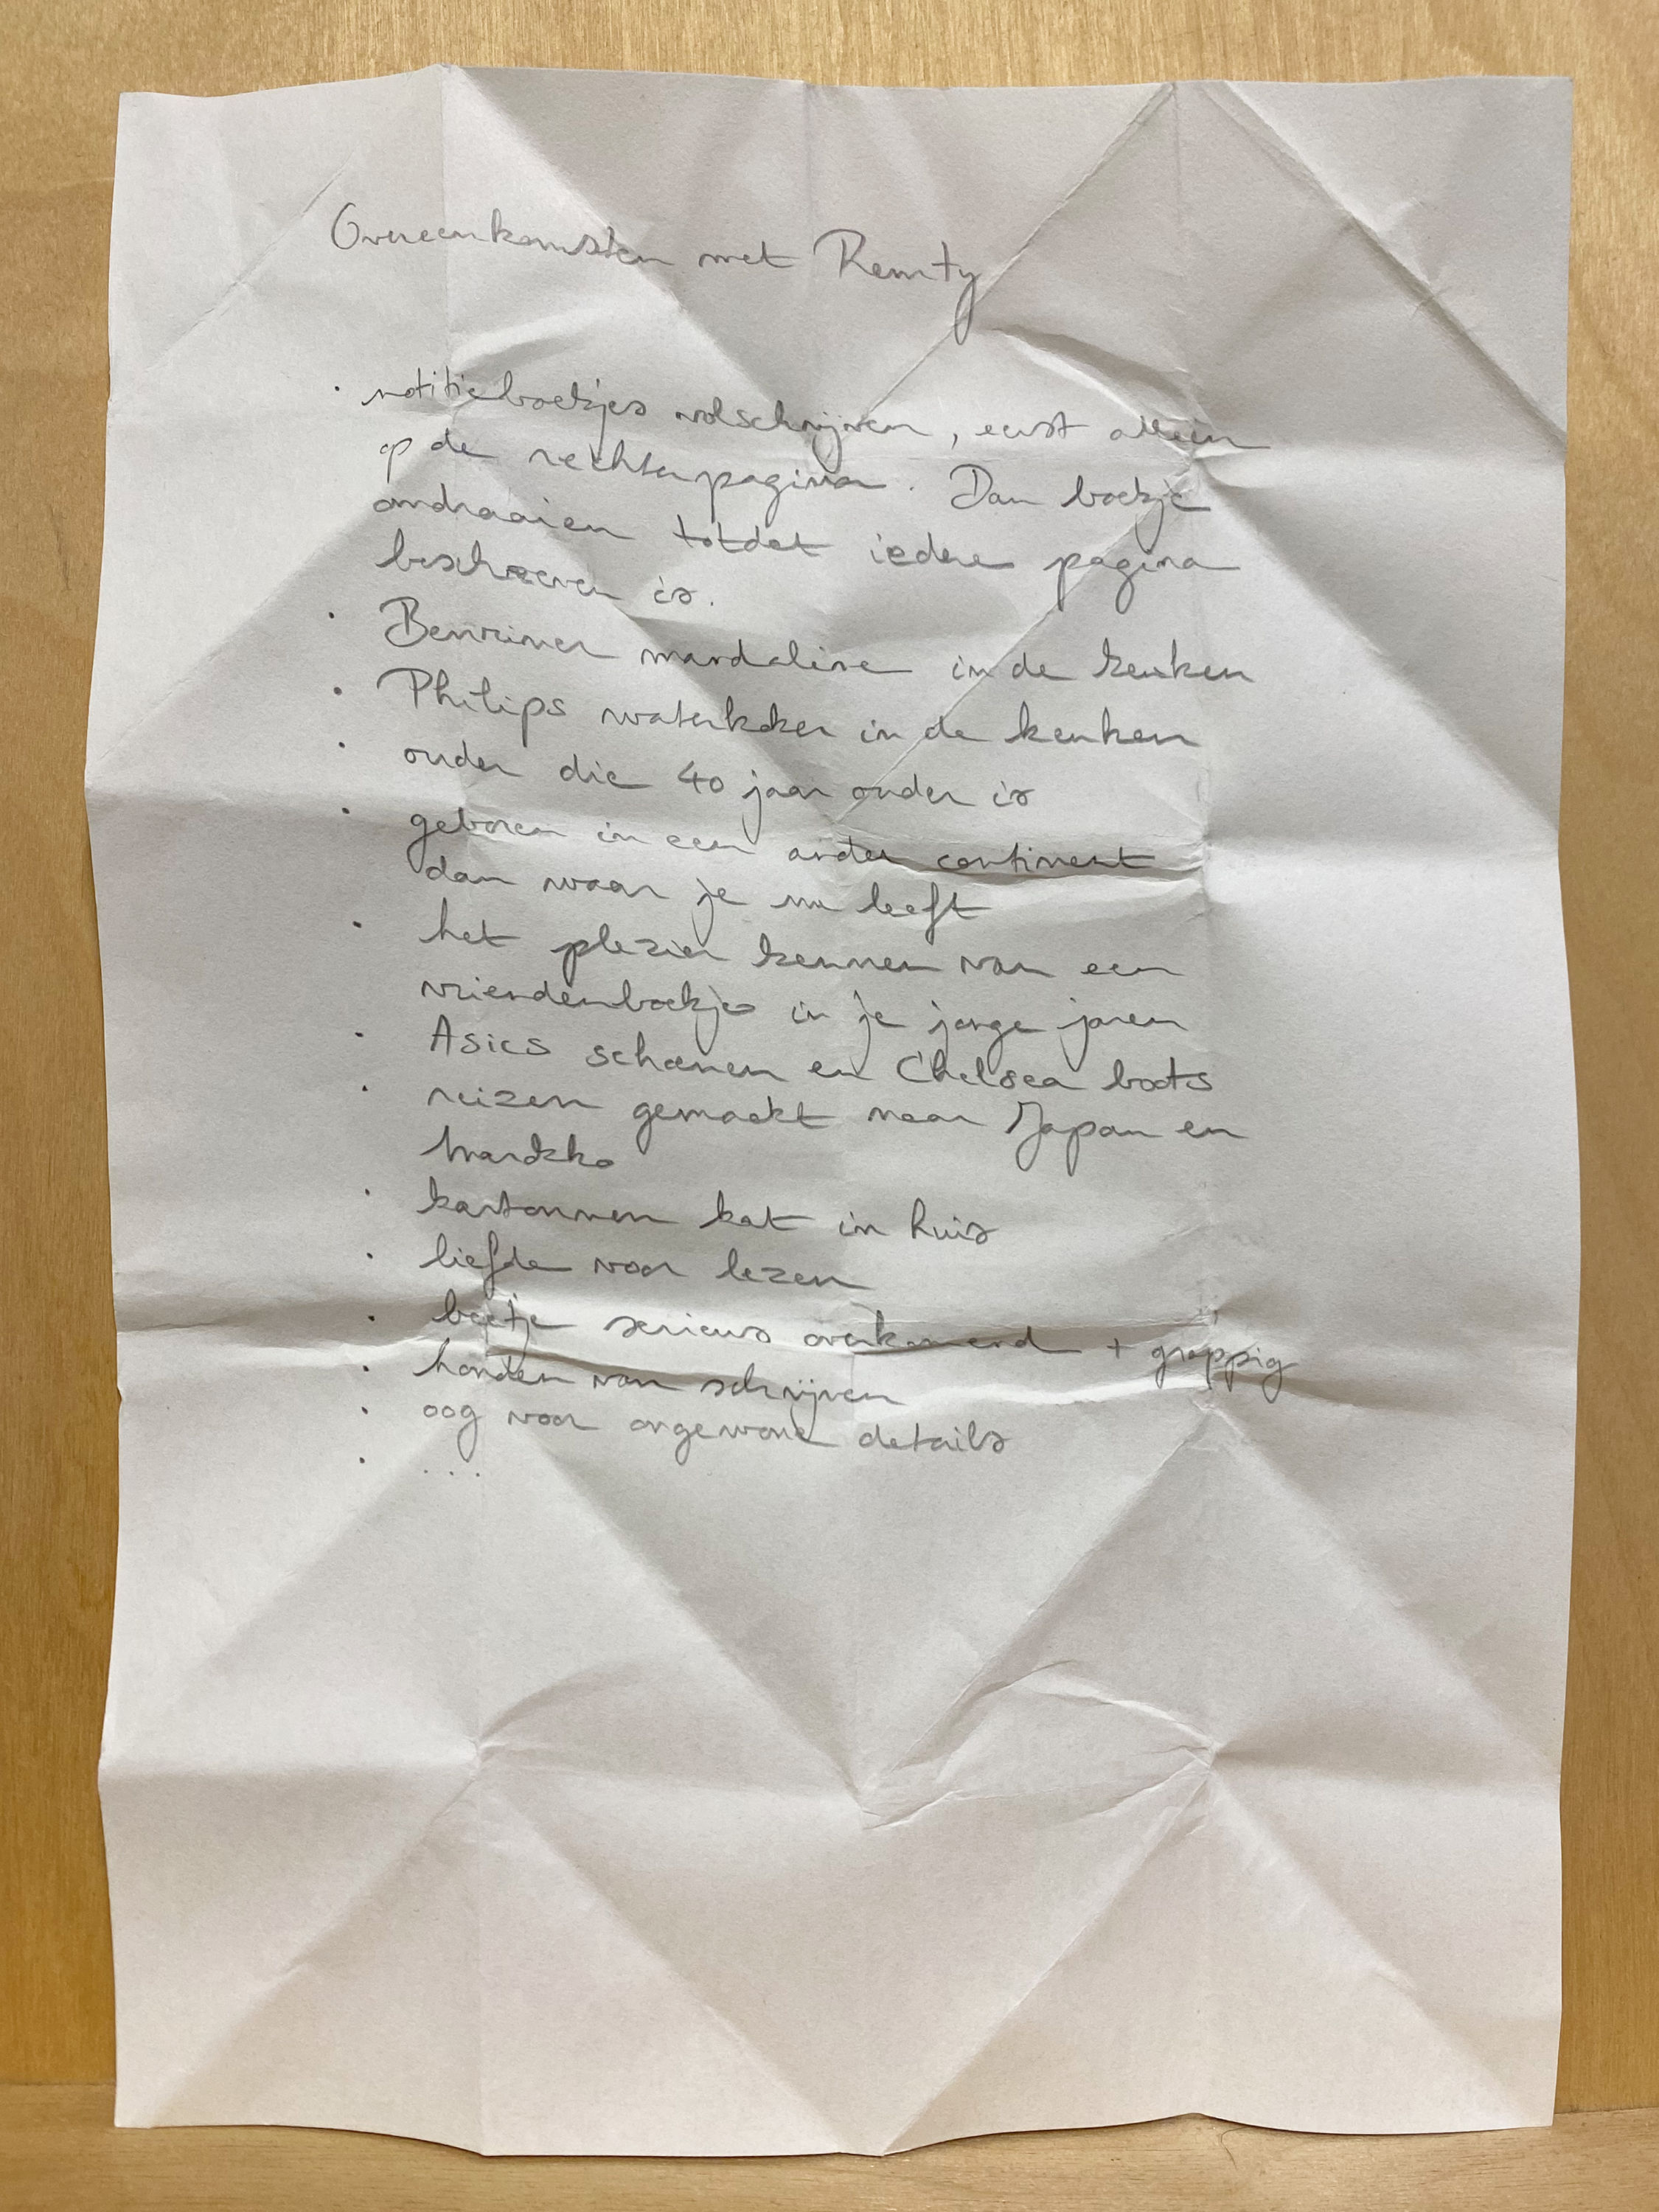 Overeenkomsten met Remty
· notitieboekjes volschrijven, eerst alleen
op de rechterpagina. Dan boekje
omdraaien totdat iedere pagina
beschreven is.
· Benriner mandoline in de keuken
· Philips waterkoker in de keuken
· ouder die 40 jaar ouder is
· geboren in een ander continent
dan waar je nu leeft
· het plezier kennen van een
vriendenboekje in je jonge jaren
· Asics schoenen en Chelsea boots
· reizen gemaakt naar Japan en
Marokko
· kartonnen kat in huis
· liefde voor lezen
· beetje serieus overkomend + grappig
· houden van schrijven
· oog voor ongewone details
· ...